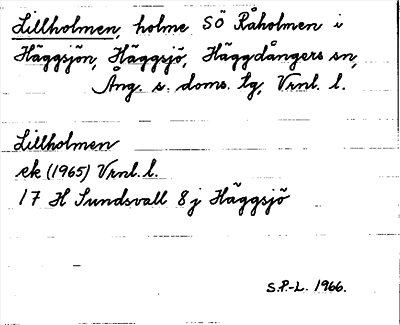 Lillholmen, holme SÖ Råholmen i
Häggsjön, Häggsjö, Häggdångers sn,
Ång. s. doms. lg, Vrnl. l.
Lillholmen
ek (1965) Vrnl. l.
17 H Sundsvall 8 j Häggsjö
S.P.-L. 1966.